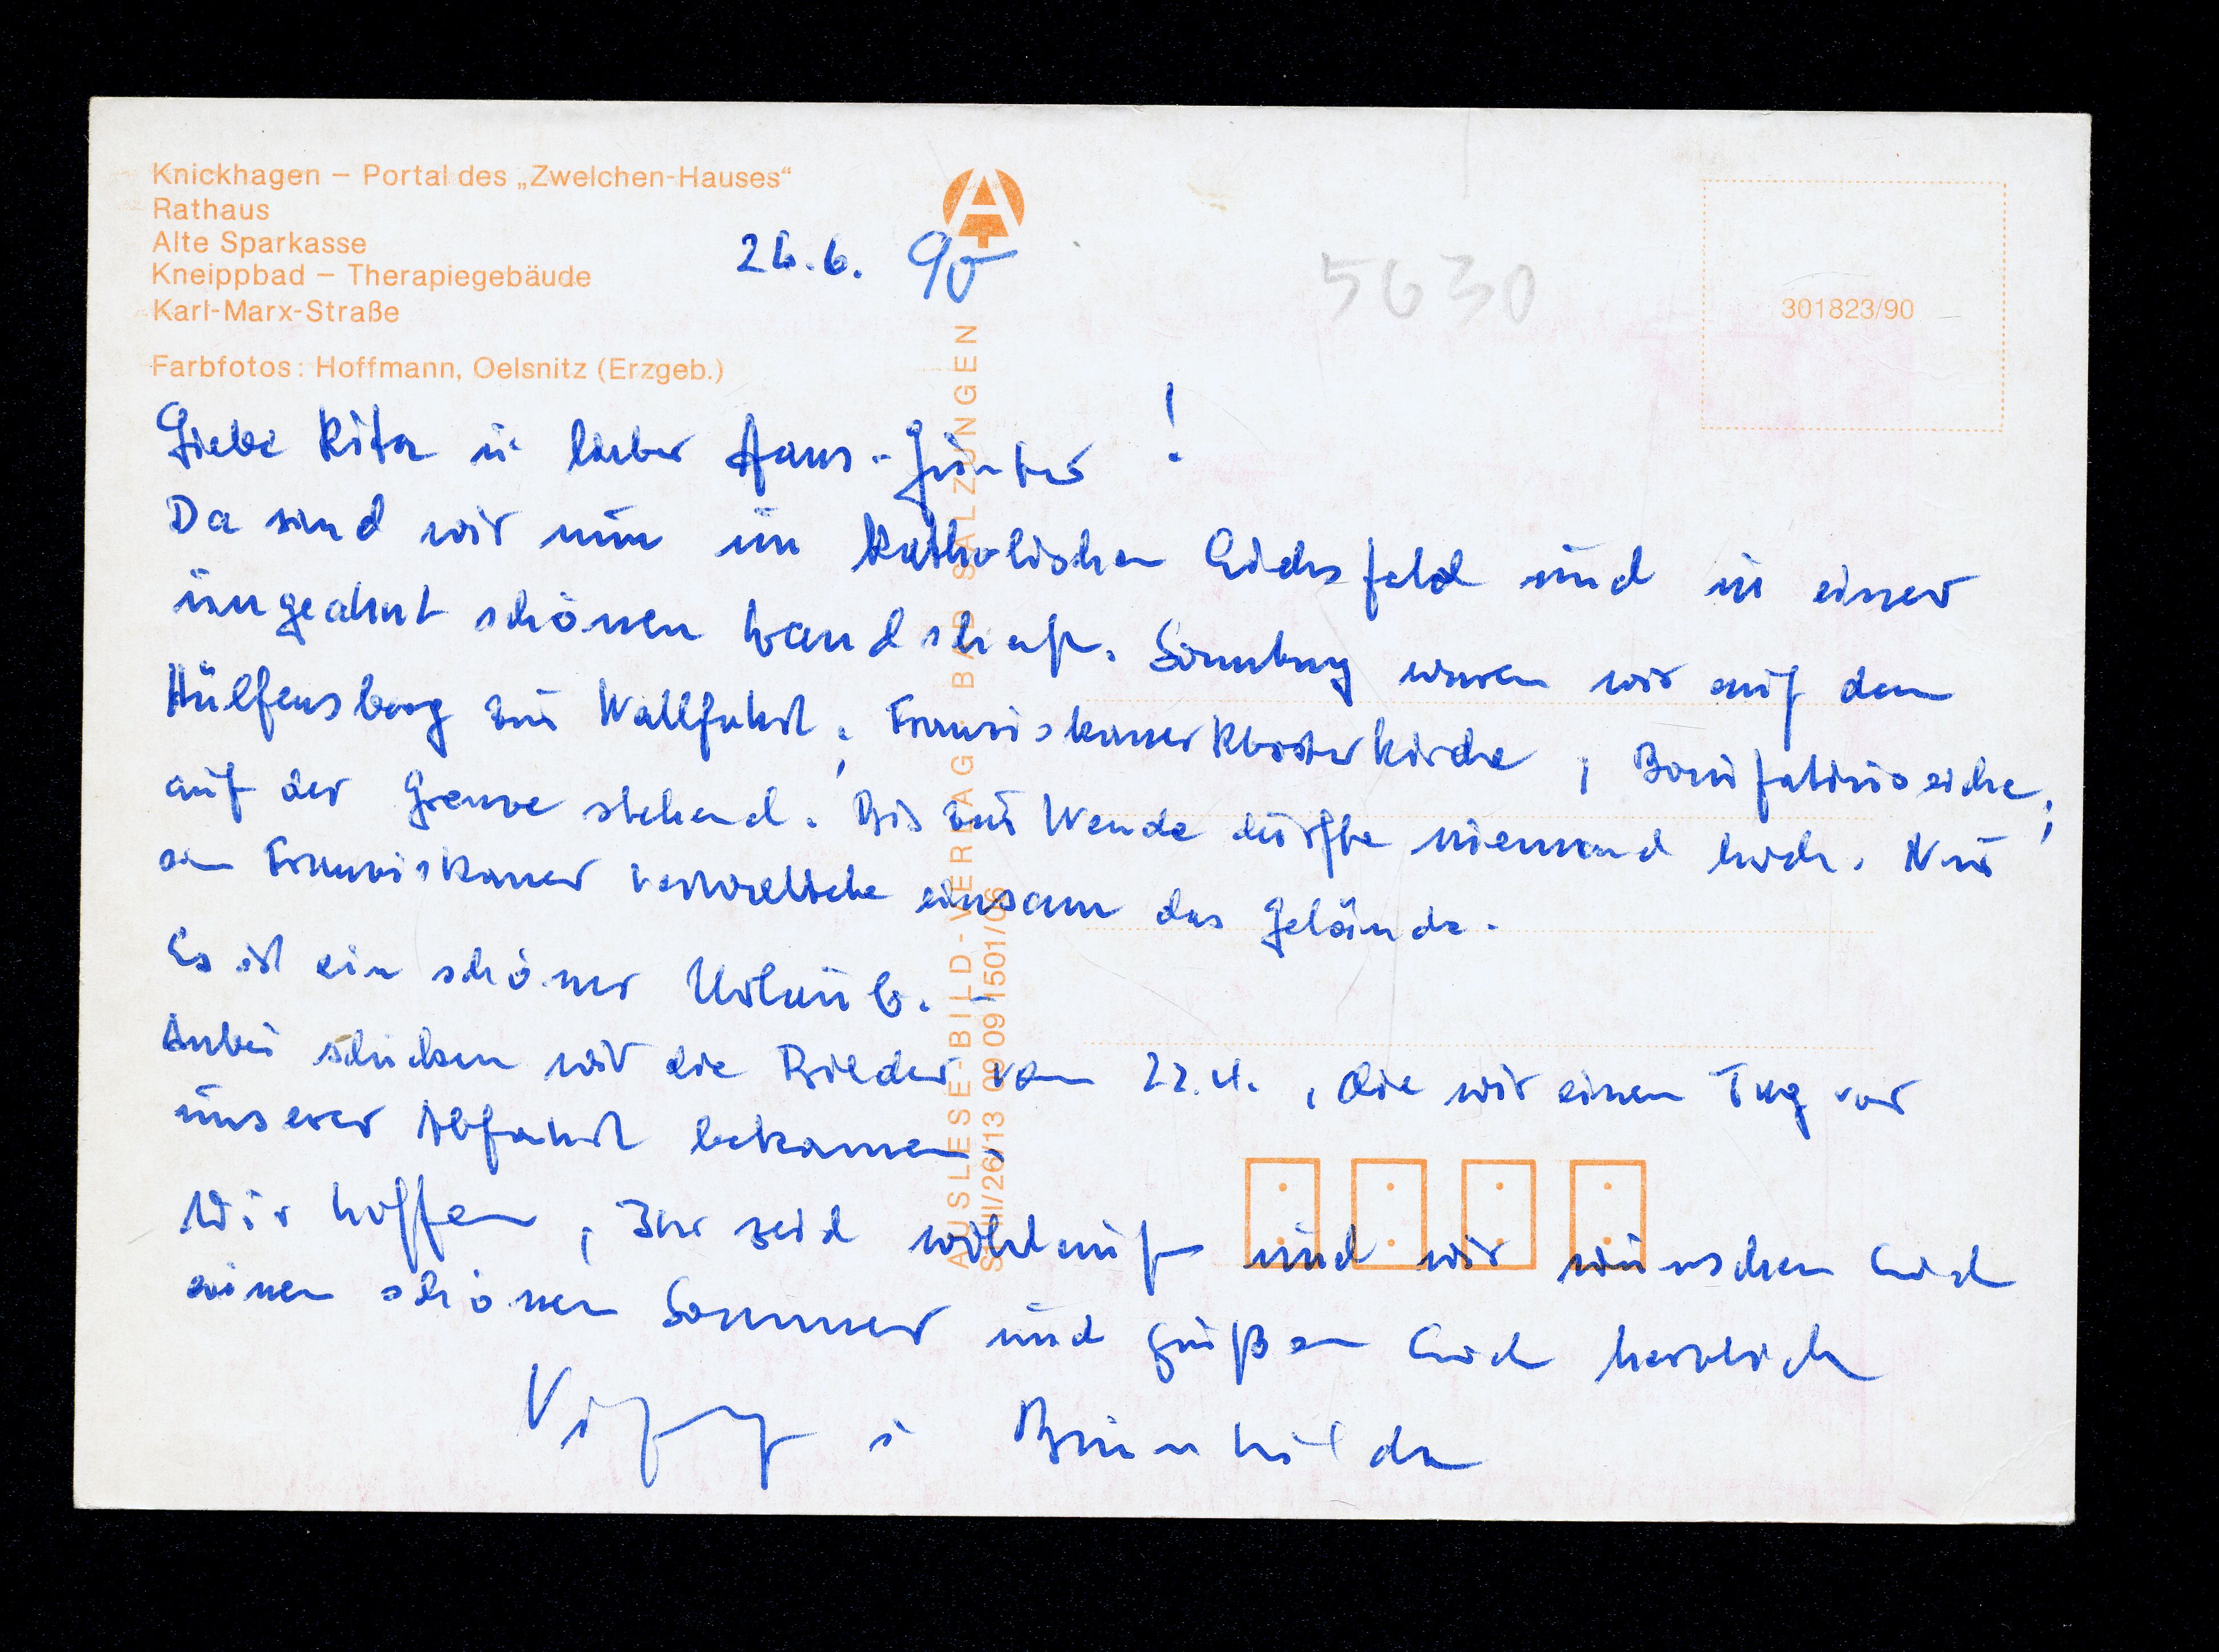 Knickhagen – Portal des „Zwelchen-Hauses“
Rathaus
Alte Sparkasse
Kneippbad – Therapiegebäude
Karl-Marx-Straße
Farbfotos: Hoffmann, Oelsnitz (Erzgeb.)
26.6. 90
5630
301823/90
AUSLESE-BILD-VERLAG BAD SALZUNGEN
09 09 1501/06
Liebe Rita u. lieber Hans-Günter!
Da sind wir nun im katholischen Eichsfeld und in einer
ungeahnt schönen Landschaft. Sonntag waren wir auf dem
Hülfensberg zur Wallfahrt; Franziskanerklosterkirche, Bonifatiuseiche;
auf der Grenze stehend. Bis zur Wende durfte niemand hoch. Nur
ein Franziskaner verwaltete einsam das Gelände.
Es ist ein schöner Urlaub. –
Anbei schicken wir die Bilder vom 22.4., die wir einen Tag vor
unserer Abfahrt bekamen.
Wir hoffen, Ihr seid wohlauf und wir wünschen Euch
einen schönen Sommer und grüßen Euch herzlich
u. Brunhilde